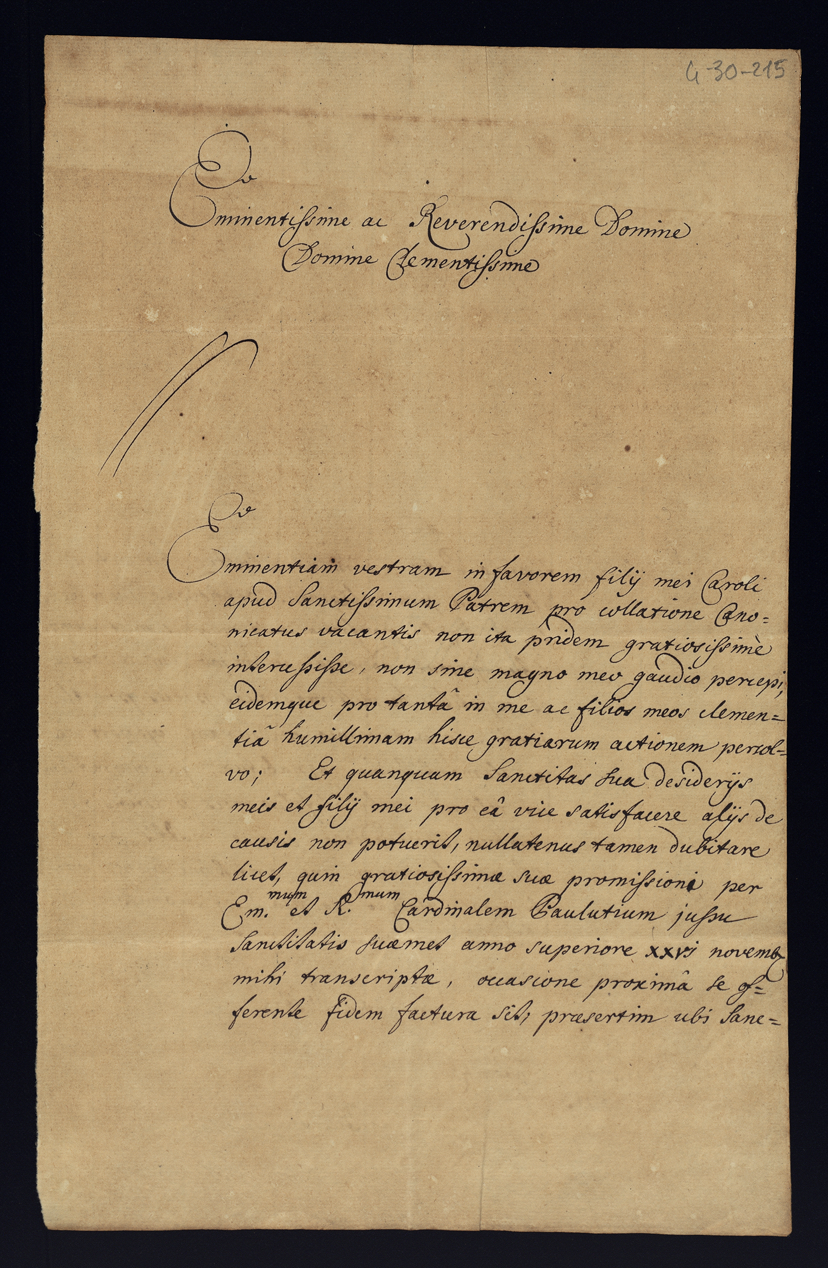 4-30-215
Eminentissime ac Reverendissime Domine
Domine Clementissime
Eminentiam vestram in favorem filij mei Caroli
apud Sanctissimum Patrem pro collatione Cano=
nicatus vacantis non ita pridem gratiosissimè
intercessisse, non sine magno meo gaudio percepi,
eidemque pro tantâ in me ac filios meos clemen=
tiâ humillimam hisce gratiarum actionem persol=
vo; Et quanquam Sanctitas sua desiderijs
meis et filij mei pro eâ vice satisfacere alijs de
causis non potuerit, nullatenus tamen dubitare
licet, quin gratiosissimæ suæ promissioni per
Em.mum et R.mum Cardinalem Paulutium jussu
Sanctitatis suæmet anno superiore xxvi novemb
mihi transcriptæ, occasione proximâ se of=
ferente fidem factura sit; præsertim ubi Sanc=